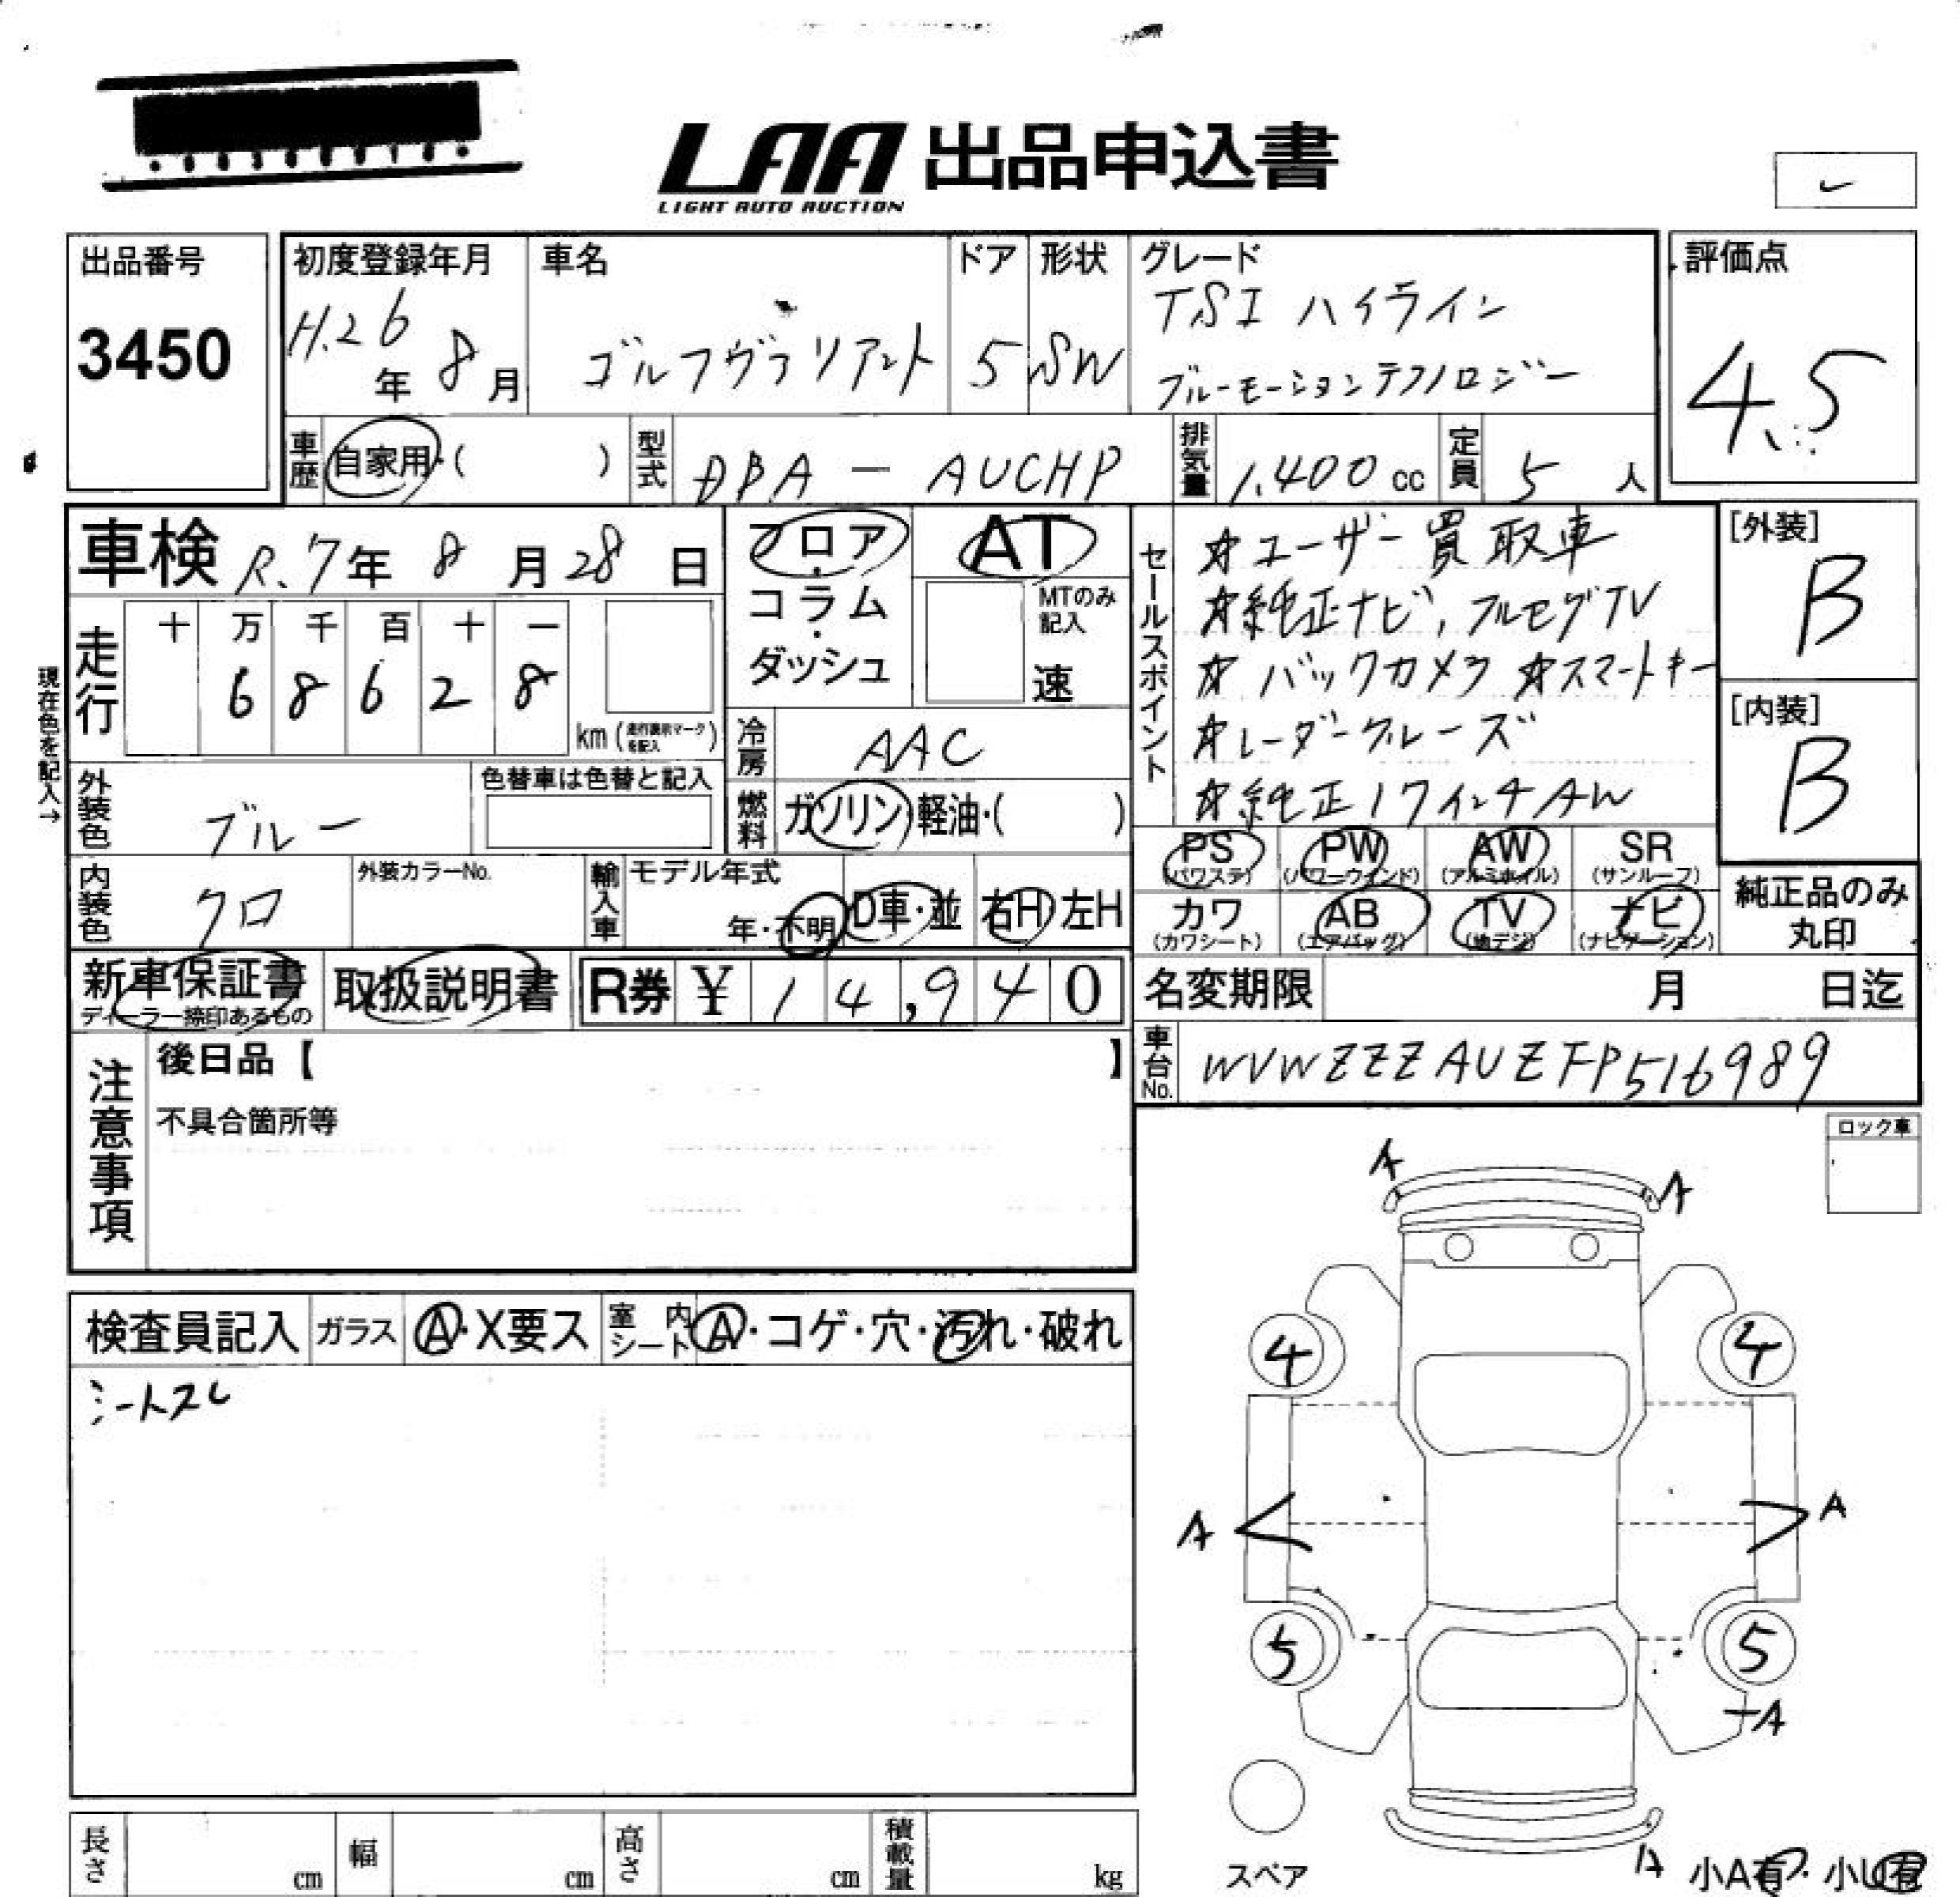 LAA 出品申込書
LIGHT AUTO AUCTION
出品番号
3450
初度登録年月
H.26年 8月
車名
ゴルフヴァリアント
ドア
5
形状
SW
グレード
TSI ハイライン
ブルーモーションテクノロジー
評価点
4.5
車歴 自家用・( )
型式 DBA - AUCHP
排気量 1,400 cc
定員 5 人
車検 R.7年 8月 28日
フロア・コラム・ダッシュ
AT
MTのみ記入
速
セールスポイント
☆ユーザー買取車
☆純正ナビ, フルセグTV
☆バックカメラ ☆スマートキー
☆レーダークルーズ
☆純正17インチAW
[外装]
B
[内装]
B
現在色を記入→
走行
十 万 千 百 十 一
6 8 6 2 8
km (走行表示マークを記入)
冷房 AAC
燃料 ガソリン・軽油・( )
外装色 ブルー
色替車は色替と記入
内装色 クロ
外装カラーNo.
輸入車
モデル年式
年・不明
D車・並
右H 左H
PS (パワステ)
PW (パワーウインド)
AW (アルミホイル)
SR (サンルーフ)
カワ (カワシート)
AB (エアバッグ)
TV (地デジ)
ナビ (ナビゲーション)
純正品のみ
丸印
新車保証書
ディーラー捺印あるもの
取扱説明書
R券 ¥ 14,940
名変期限 月 日迄
車台No. WVWZZZAUZFP516989
注意事項
後日品【 】
不具合箇所等
ロック車
検査員記入
ガラス A・X要ス
室内シート A・コゲ・穴・汚れ・破れ
シートスレ
A
A
4
4
A
A
5
5
A
A
スペア
小A有・小U有
長さ cm
幅 cm
高さ cm
積載量 kg